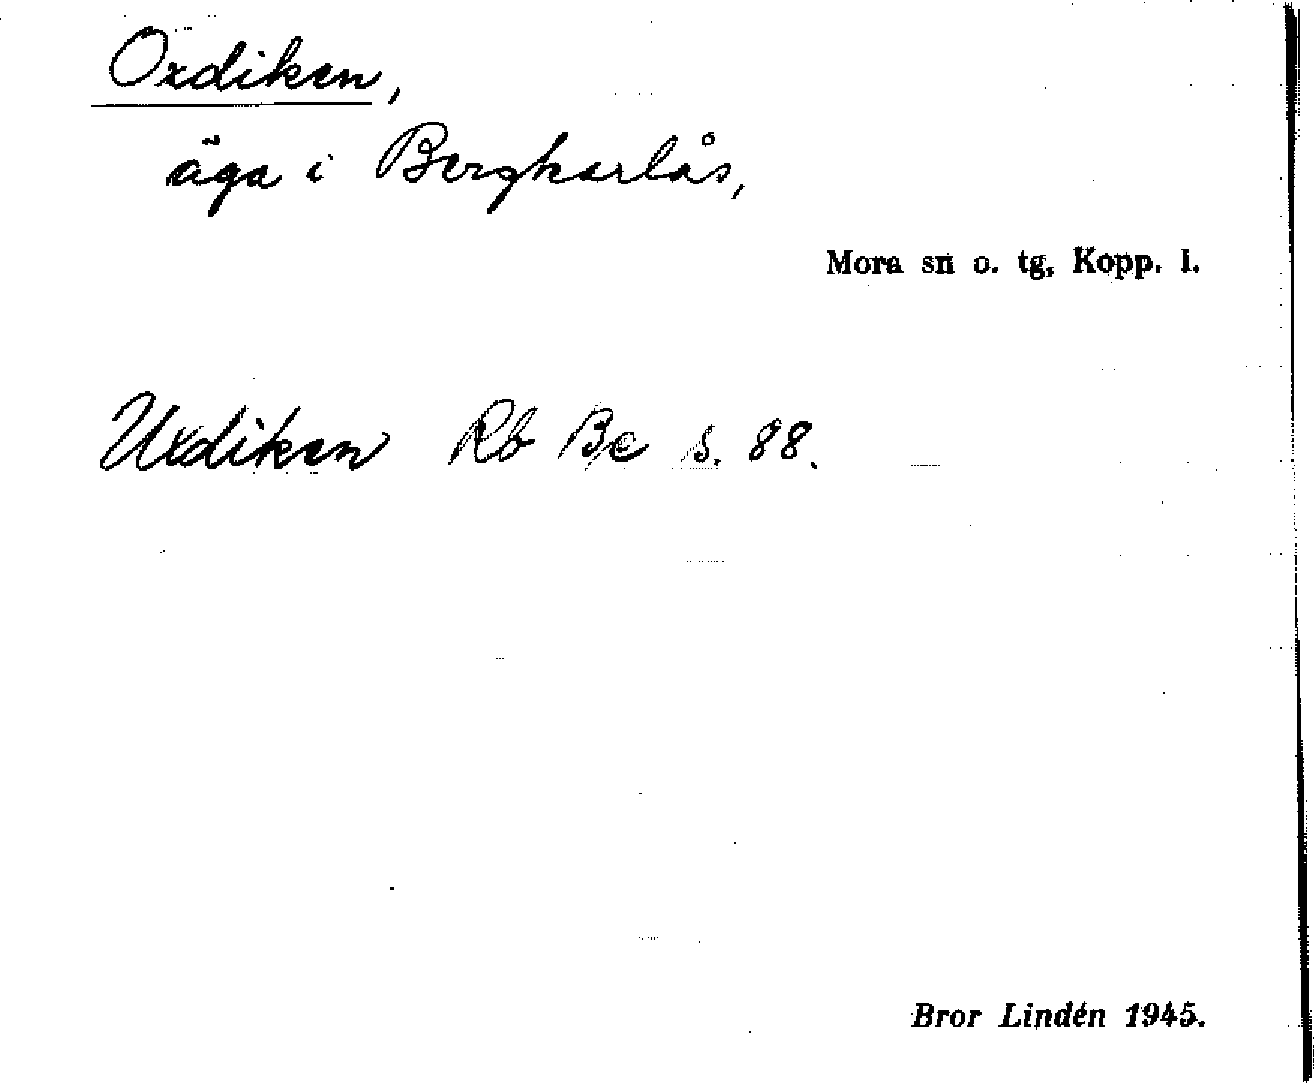 Oxdiken,
äga i Bergkarlås,
Mora sn o. tg, Kopp. l.
Uxdiken Rb Be s. 88.
Bror Lindén 1945.